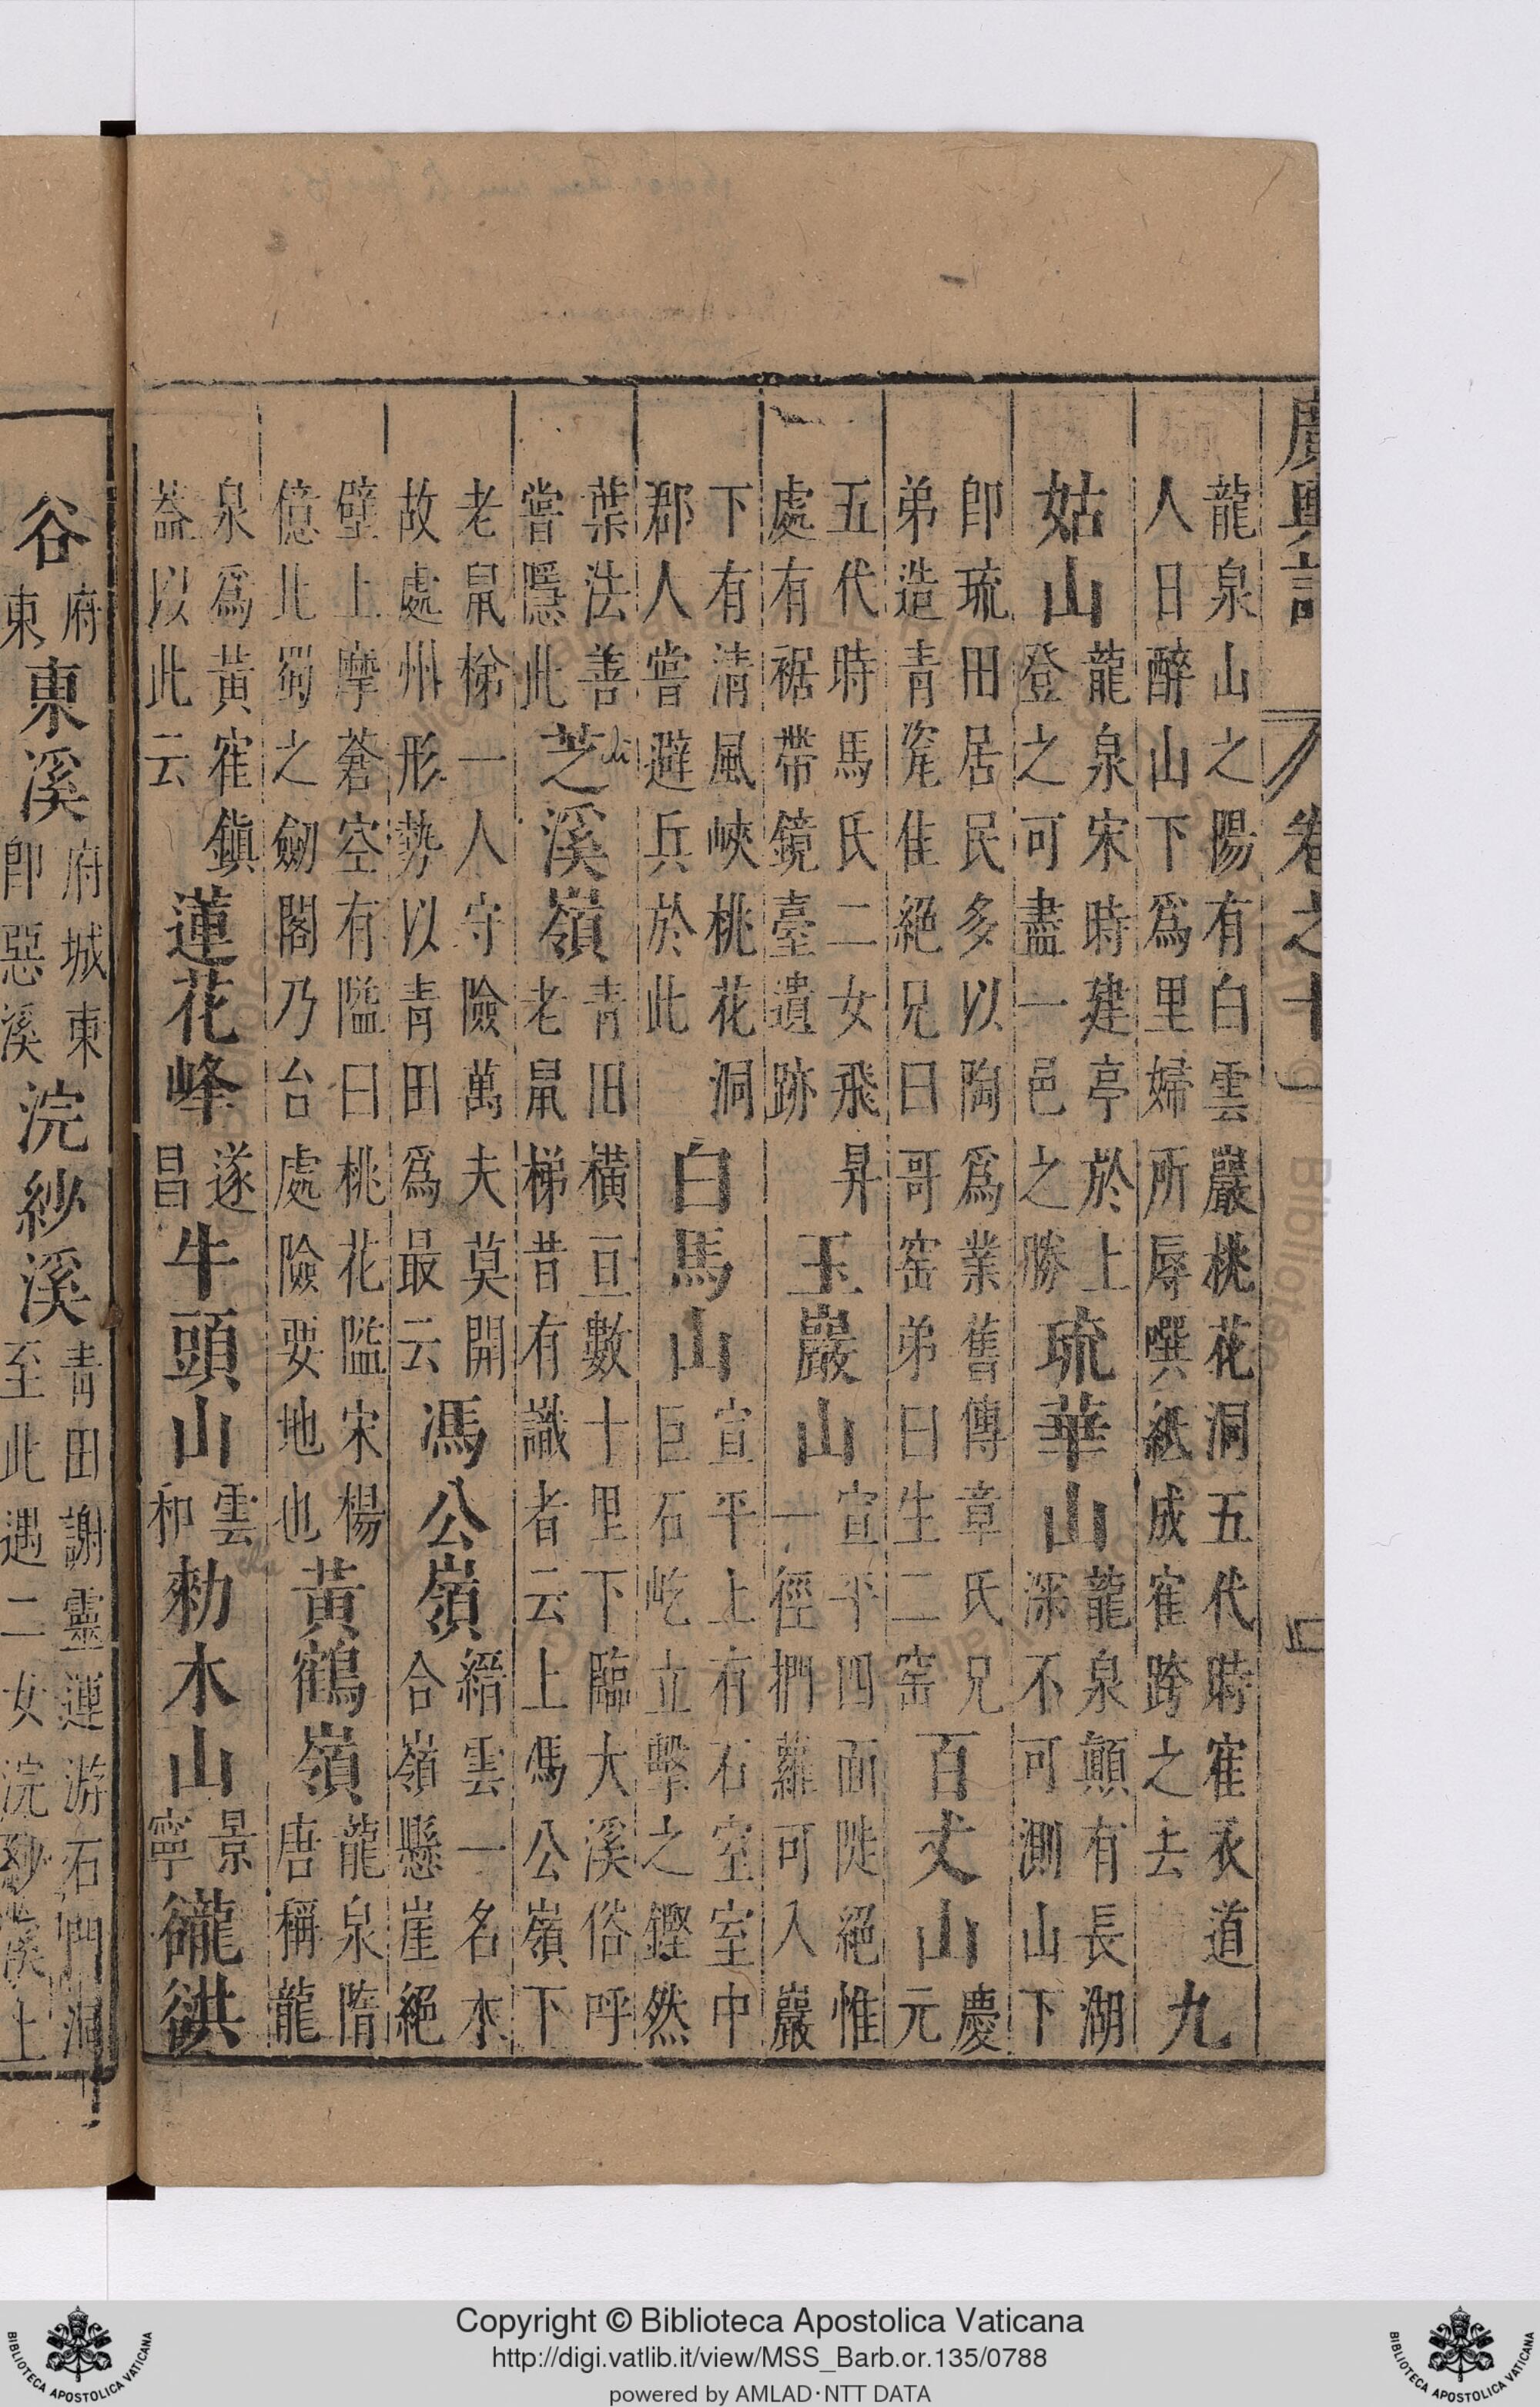 廣輿記 卷之十一
龍泉山之陽有白雲巖桃花洞五代時寉衣道人日醉山下爲里婦所辱噀紙成寉跨之去 九
姑山 龍泉宋時建亭於上登之可盡一邑之勝 琉華山 龍泉顛有長湖深不可測山下
卽琉田居民多以陶爲業舊傳章氏兄弟造青窰佳絕兄曰哥窑弟曰生二窑 百丈山 慶元
五代時馬氏二女飛昇處有裾帶鏡臺遺跡 玉巖山 宣平四面陡絕惟一徑捫蘿可入巖
下有清風峽桃花洞郡人嘗避兵於此 白馬山 宣平上有石室室中巨石屹立擊之鏗然
葉法善嘗隱此 芝溪嶺 青田橫亘數十里下臨大溪俗呼老鼠梯昔有識者云上馮公嶺下
老鼠梯一人守險萬夫莫開故處州形勢以青田爲最云 馮公嶺 縉雲一名木合嶺懸崖絕
壁上摩蒼空有隘曰桃花隘宋楊億比蜀之劒閣乃台處險要地也 黃鶴嶺 龍泉隋唐稱龍
泉爲黃寉鎭葢以此云 蓮花峰 遂昌 牛頭山 雲和 勑木山 景寧
谷 府東 東溪 府城東卽惡溪 浣紗溪 青田謝靈運游石門洞至此遇二女浣紗溪上
Copyright © Biblioteca Apostolica Vaticana
http://digi.vatlib.it/view/MSS_Barb.or.135/0788
powered by AMLAD·NTT DATA
BIBLIOTECA APOSTOLICA VATICANA
BIBLIOTECA APOSTOLICA VATICANA